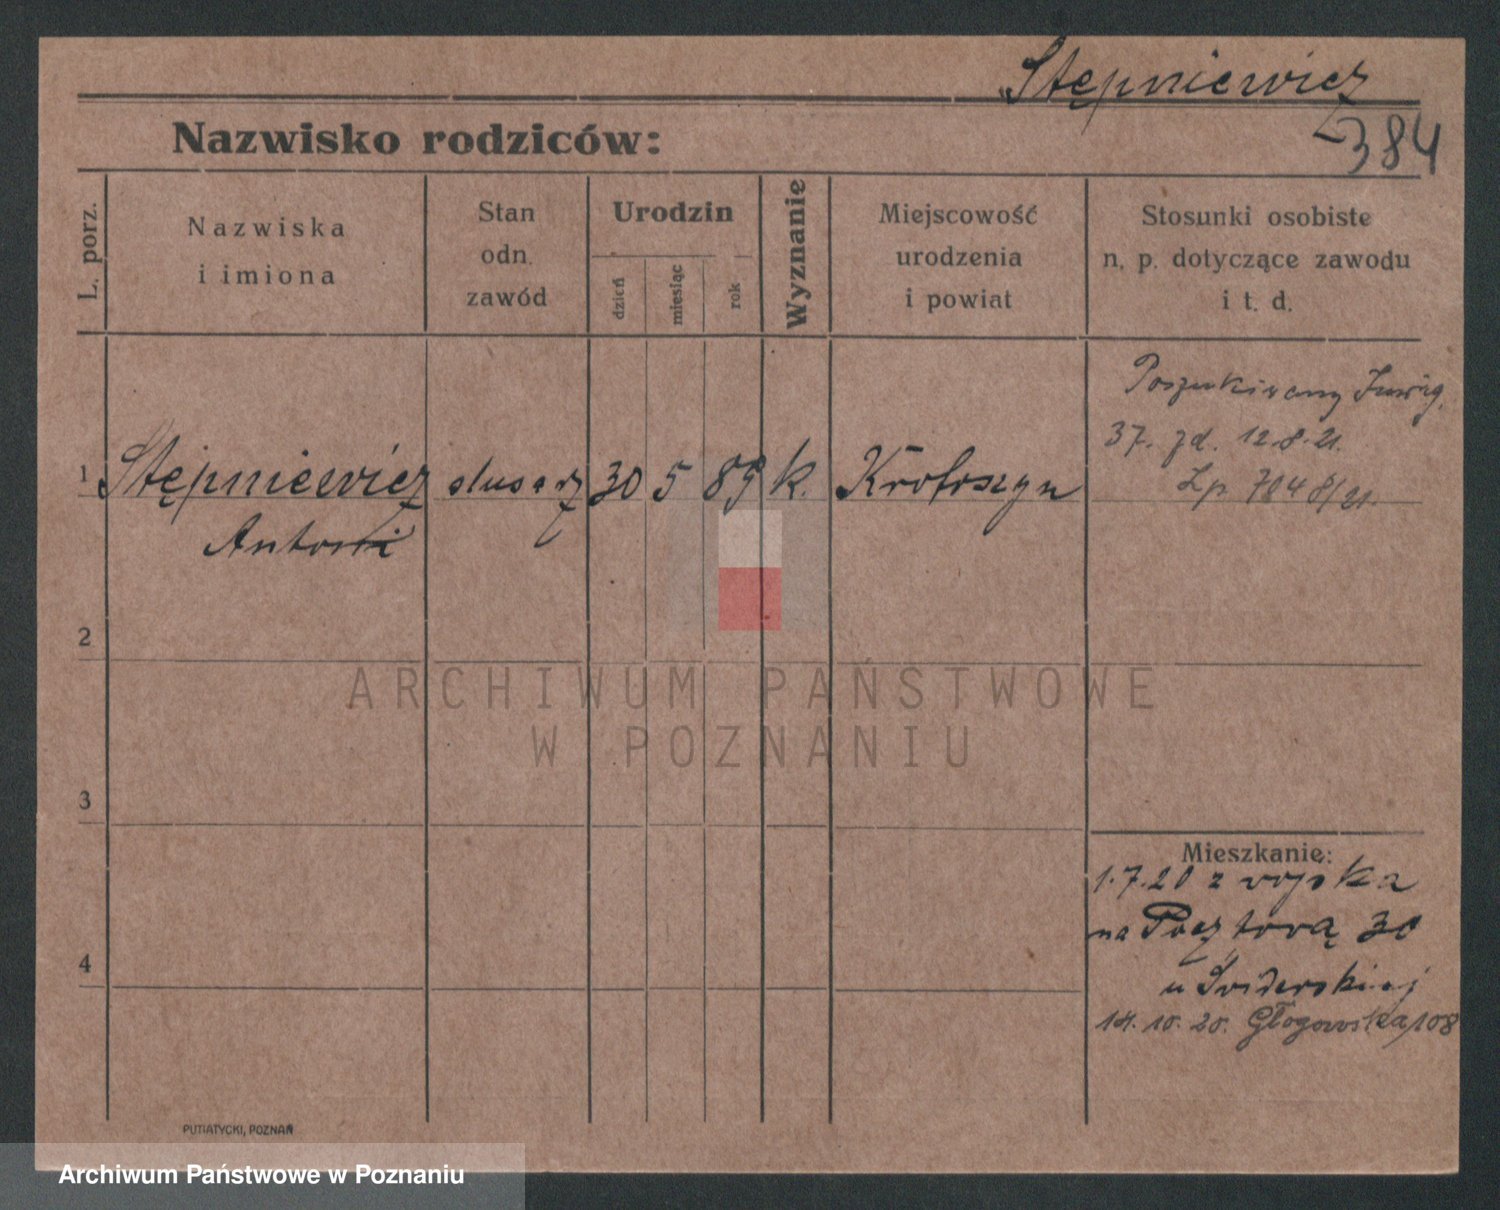 Stępniewicz
384
Nazwisko rodziców:
L. porz.
Nazwiska
i imiona
Stan
odn.
zawód
Urodzin
dzień
miesiąc
rok
Wyznanie
Miejscowość
urodzenia
i powiat
Stosunki osobiste
n. p. dotyczące zawodu
i t. d.
Poszukiwany
37. 12.8.21.
Lp 7048/21.
1 Stępniewicz ślusarz 30 5 89 k. Krotoszyn
Antoni
2
3
4
Mieszkanie:
1.7.20 z wojska
na Pocztową 30
u Świderskiej
14.10.20. Głogowska 108
PUTIATYCKI, POZNAŃ
ARCHIWUM PAŃSTWOWE
W POZNANIU
Archiwum Państwowe w Poznaniu